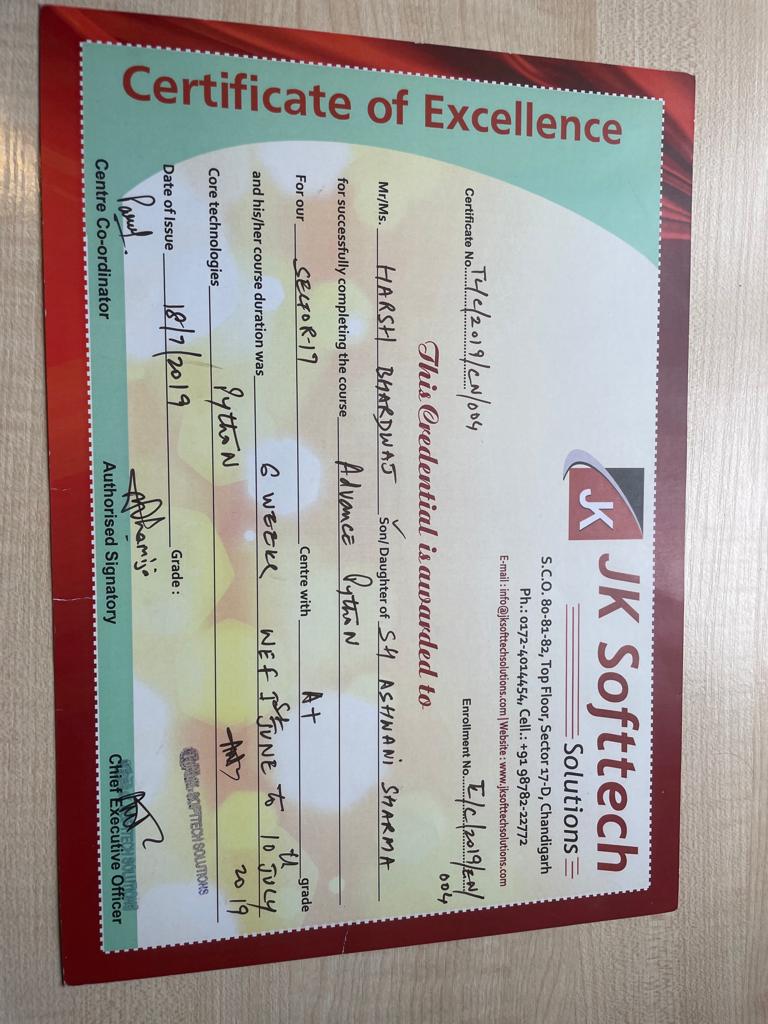 Certificate of Excellence
JK JK Softtech
Solutions
S.C.O. 80-81-82, Top Floor, Sector 17-D, Chandigarh
Ph.: 0172-4014454, Cell.: +91 98782-22772
E-mail : info@jksofttechsolutions.com | Website : www.jksofttechsolutions.com
Certificate No. TL/C/2019/CN/004 Enrollment No. E/C/2019/EN/004
This Credential is awarded to
Mr/Ms. HARSH BHARDWAJ Son/Daughter of SH ASHWANI SHARMA
for successfully completing the course Advance PythoN
For our SECTOR-17 Centre with A+ grade
and his/her course duration was 6 WEEKS WEF 1st JUNE to 10th JULY 2019
Core technologies PythoN
Date of Issue 18/7/2019 Grade :
SOFTTECH SOLUTIONS
Centre Co-ordinator Authorised Signatory Chief Executive Officer